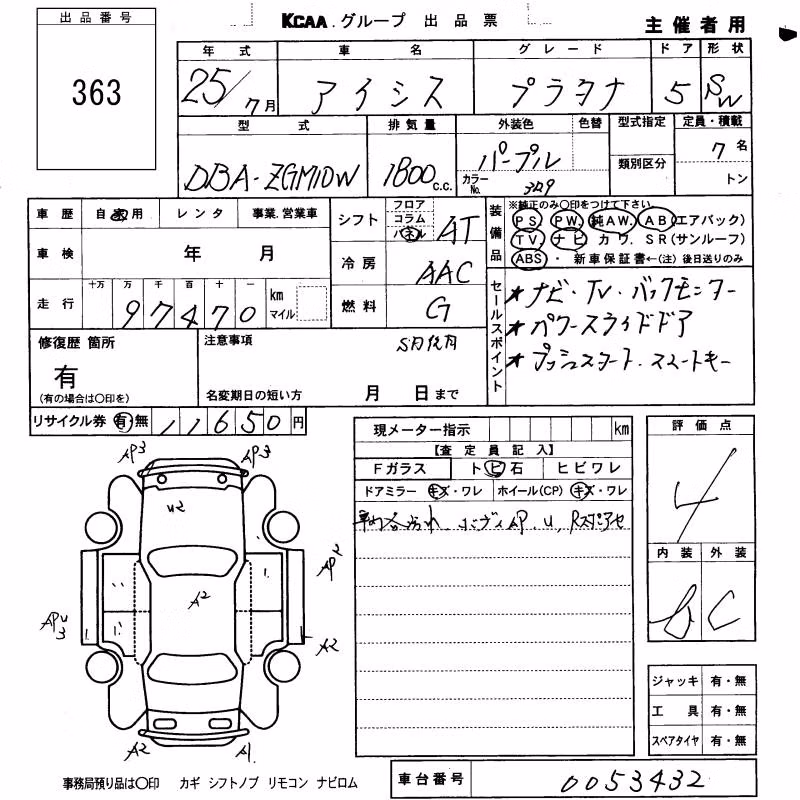 出品番号
363
KCAA.グループ 出品票
主催者用
年式 車名 グレード ドア 形状
25/7月 アイシス プラタナ 5 SW
型式 排気量 外装色 色替 型式指定 定員・積載
DBA-ZGM10W 1800c.c. パープル
カラーNo. 349
類別区分
7名
トン
車歴 自家用 レンタ 事業.営業車
車検 年 月
走行 十万 万 千 百 十 一
97470 km マイル
シフト フロア コラム パネル AT
冷房 AAC
燃料 G
装備品
※純正のみ〇印をつけて下さい。
PS PW 純AW. AB(エアバック)
TV. ナビ カワ. SR(サンルーフ)
ABS ・ 新車保証書←(注)後日送りのみ
セールスポイント
★ナビ・TV・バックモニター
★パワースライドドア
★プッシュスタート・スマートキー
修復歴 箇所
有
(有の場合は〇印を)
注意事項
名変期日の短い方 月 日まで
リサイクル券 有 無 11650円
現メーター指示 km
【査定員記入】
Fガラス トビ石 ヒビワレ
ドアミラー キズ・ワレ ホイール(CP) キズ・ワレ
評価点
4
内装 外装
B C
AP3 AP3
U2
A2
AP2
APU3
A2
A2 A1
ジャッキ 有・無
工具 有・無
スペアタイヤ 有・無
事務局預り品は〇印 カギ シフトノブ リモコン ナビロム
車台番号 0053432